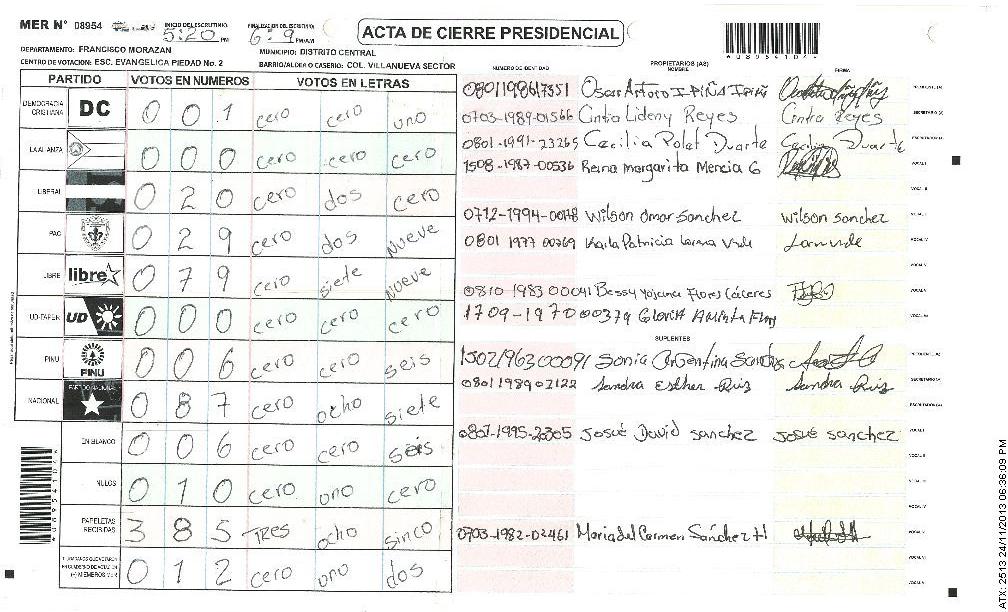 MER N° 08954
INICIO DEL ESCRUTINIO 5:20 PM
FINALIZACION DEL ESCRUTINIO 6:9 PM/AM
ACTA DE CIERRE PRESIDENCIAL
DEPARTAMENTO: FRANCISCO MORAZAN
MUNICIPIO: DISTRITO CENTRAL
CENTRO DE VOTACION: ESC. EVANGELICA PIEDAD No. 2
BARRIO/ALDEA O CASERIO: COL. VILLANUEVA SECTOR
PARTIDO VOTOS EN NUMEROS VOTOS EN LETRAS
DEMOCRACIA CRISTIANA DC 0 0 1 cero cero uno
LA ALIANZA 0 0 0 cero cero cero
LIBERAL 0 2 0 cero dos cero
PAC 0 2 9 cero dos nueve
LIBRE libre 0 7 9 cero siete nueve
UD-FAPER UD 0 0 0 cero cero cero
PINU PINU 0 0 6 cero cero seis
NACIONAL PARTIDO NACIONAL 0 8 7 cero ocho siete
EN BLANCO 0 0 6 cero cero seis
NULOS 0 1 0 cero uno cero
PAPELETAS RECIBIDAS 3 8 5 TRES ocho sinco
0 1 2 cero uno dos
NUMERO DE IDENTIDAD PROPIETARIOS (AS) NOMBRE FIRMA
Oscar Arturo
0703-1989-01566 Cintia Lideny Reyes Cintia Reyes
0801-1991-23265 Cecilia Polet Duarte Cecilia Duarte
1508-1987-00536 Reina margarita Mencia G
0712-1994-00178 Wilson Omar Sanchez Wilson Sanchez
0801 1977 00769 Karla Patricia
0810-1983 00041 Bessy Yojana Flores Cáceres
1709-1970 00379 Gloria Aminta
SUPLENTES
1502196300091 Sonia Argentina
0801 1989 02122 Sandra Esther Ruiz Sandra Ruiz
0801-1995-2305 Josué David Sanchez Josué Sanchez
0703-1982-02461 Maria del Carmen Sánchez H
ATX: 2513 24/11/2013 06:36:09 PM